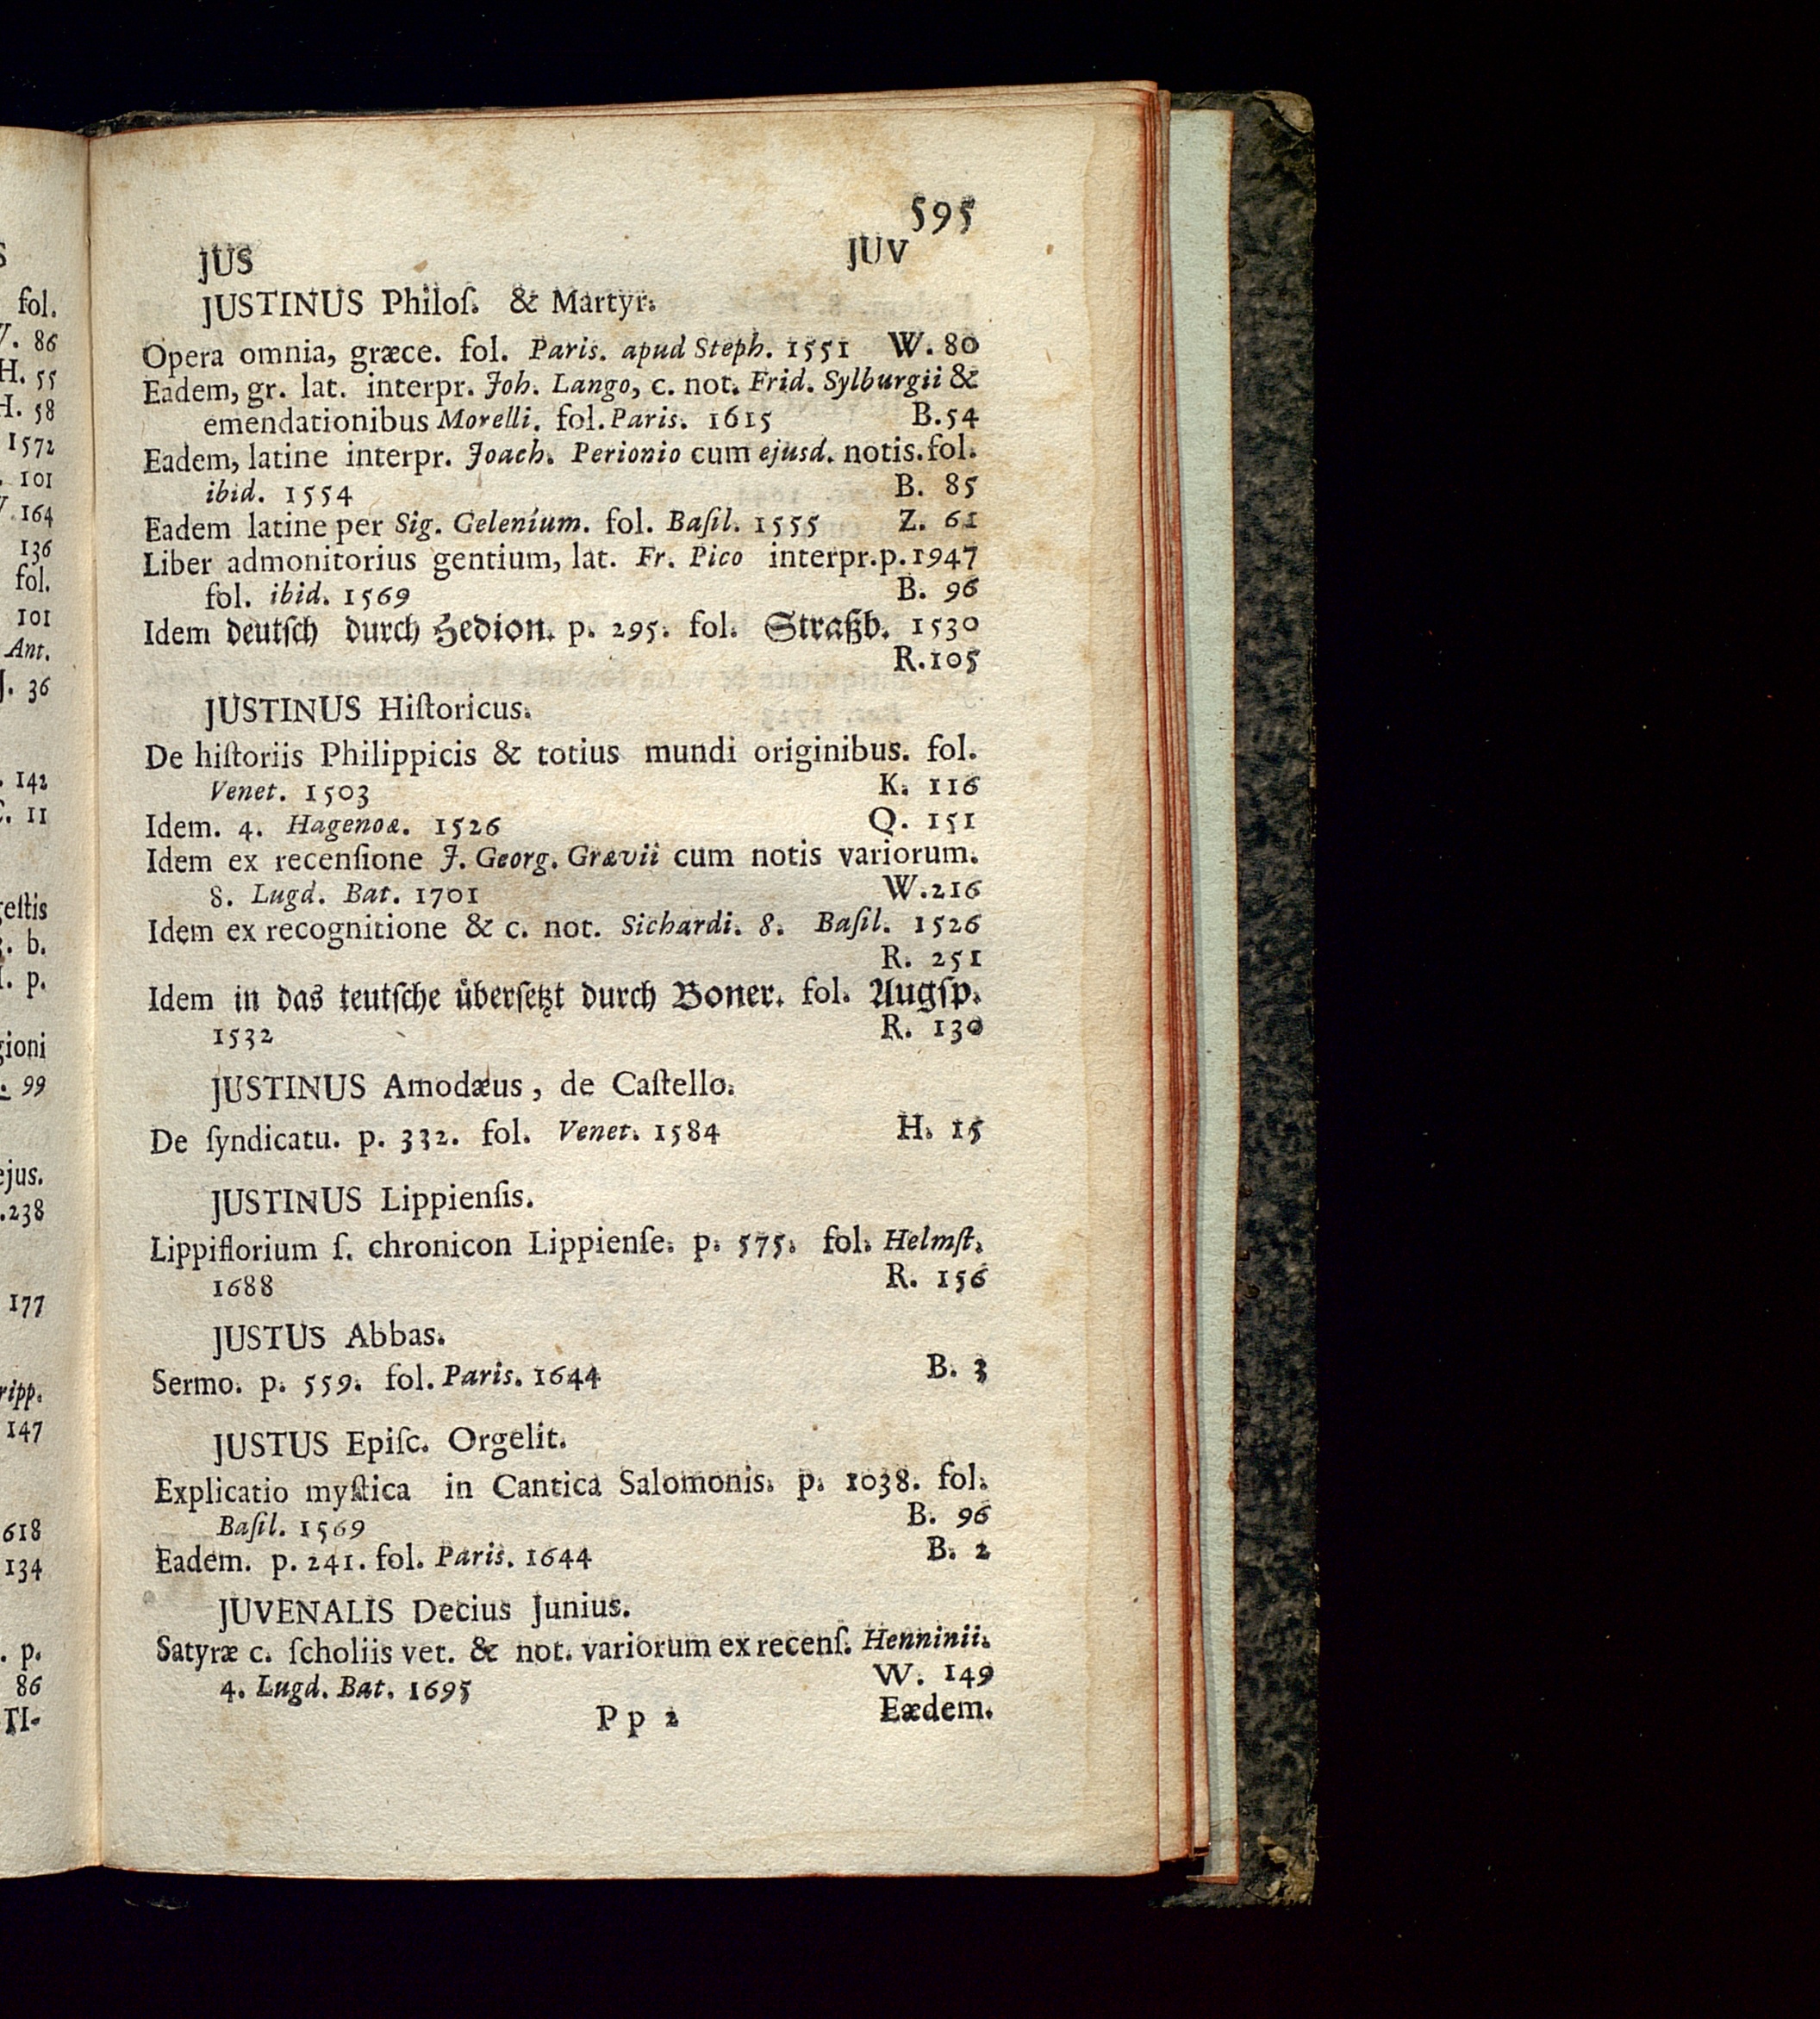 fol.
V. 86
H. 55
H. 58
1572
. 101
V. 164
136
fol.
101
Ant.
J. 36
. 142
C. 11
geſtis
g. b.
p.
gioni
. 99
ejus.
.238
177
ripp.
147
618
134
. p.
86
TI-
595
JUS JUV
JUSTINUS Philoſ. & Martyr.
Opera omnia, græce. fol. Paris. apud Steph. 1551 W. 80
Eadem, gr. lat. interpr. Joh. Lango, c. not. Frid. Sylburgii &
emendationibus Morelli. fol. Paris. 1615 B.54
Eadem, latine interpr. Joach. Perionio cum ejusd. notis. fol.
ibid. 1554 B. 85
Eadem latine per Sig. Gelenium. fol. Baſil. 1555 Z. 61
Liber admonitorius gentium, lat. Fr. Pico interpr.p.1947
fol. ibid. 1569 B. 96
Idem deutſch durch Hedion. p. 295. fol. Straßb. 1530
R.105
JUSTINUS Hiſtoricus.
De hiſtoriis Philippicis & totius mundi originibus. fol.
Venet. 1503 K. 116
Idem. 4. Hagenoæ. 1526 Q. 151
Idem ex recenſione J. Georg. Grævii cum notis variorum.
8. Lugd. Bat. 1701 W.216
Idem ex recognitione & c. not. Sichardi. 8. Baſil. 1526
R. 251
Idem in das teutſche überſetzt durch Boner. fol. Augſp.
1532 R. 130
JUSTINUS Amodæus, de Caſtello.
De ſyndicatu. p. 332. fol. Venet. 1584 H. 15
JUSTINUS Lippienſis.
Lippiflorium ſ. chronicon Lippienſe. p. 575. fol. Helmſt.
1688 R. 156
JUSTUS Abbas.
Sermo. p. 559. fol. Paris. 1644 B. 3
JUSTUS Epiſc. Orgelit.
Explicatio myſtica in Cantica Salomonis. p. 1038. fol.
Baſil. 1569 B. 96
Eadem. p. 241. fol. Paris. 1644 B. 2
JUVENALIS Decius Junius.
Satyræ c. ſcholiis vet. & not. variorum ex recenſ. Henninii.
4. Lugd. Bat. 1695 W. 149
P p 2 Eædem.